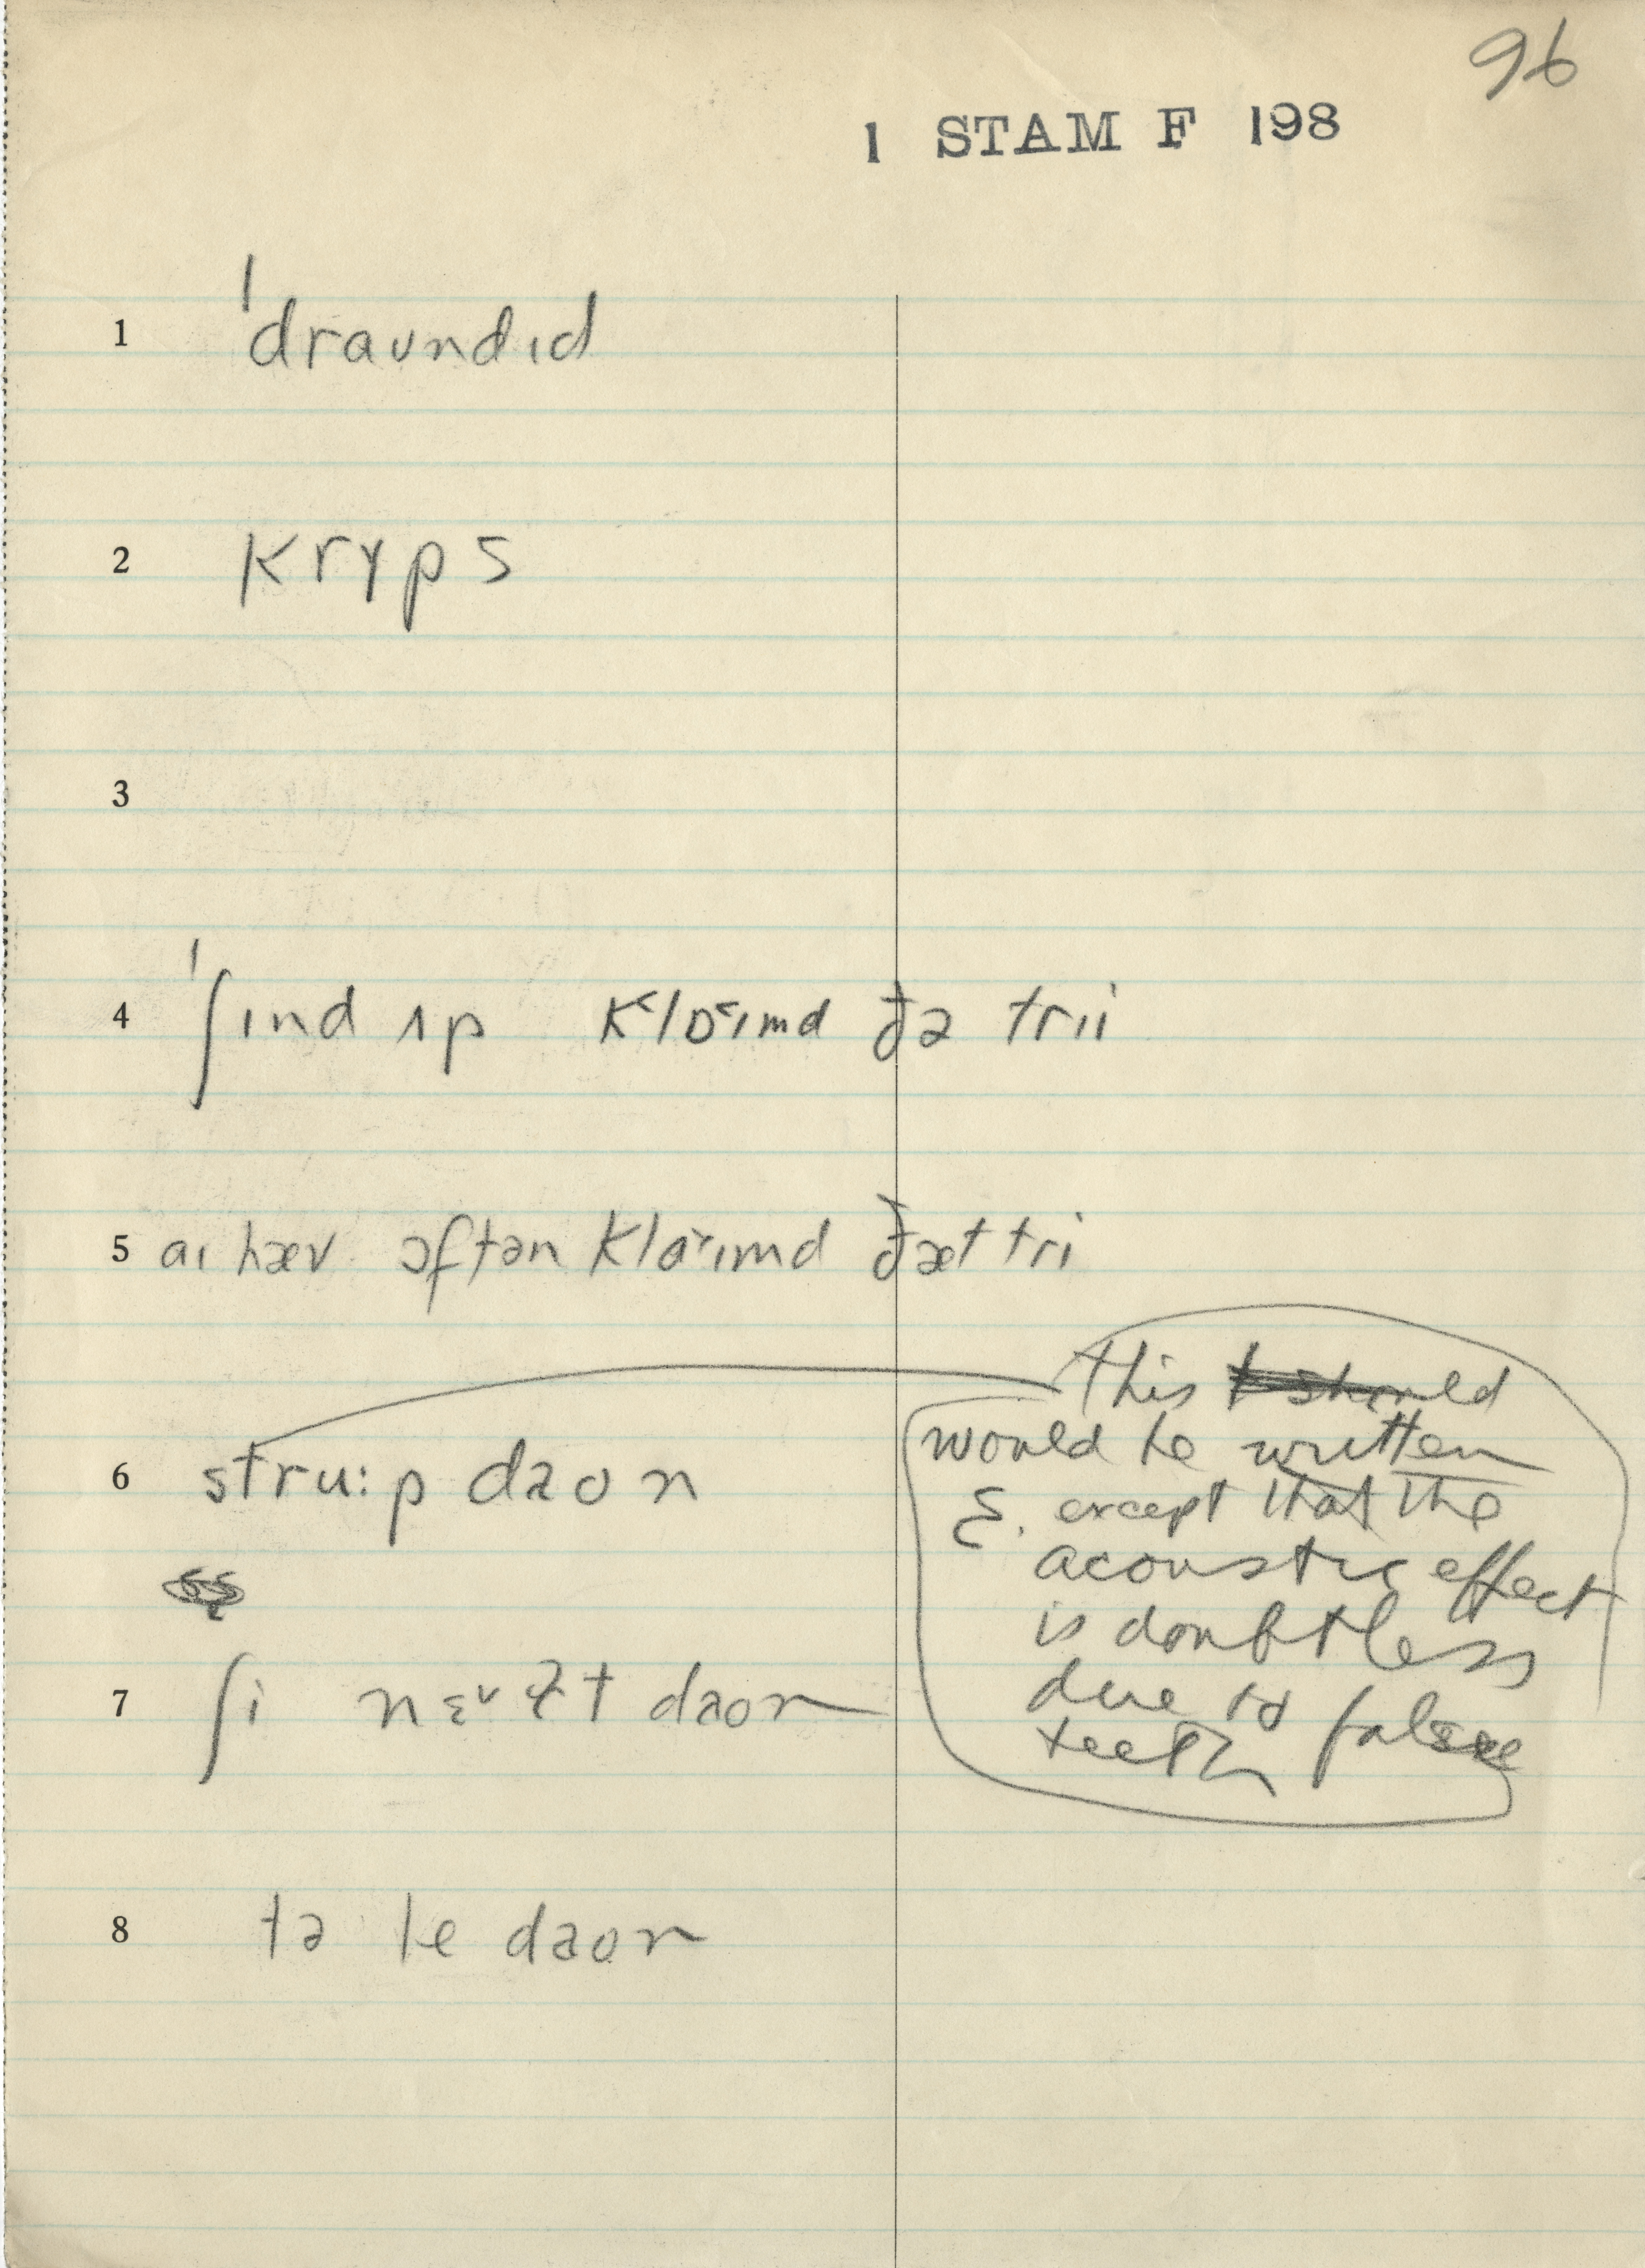 96
1 STAM F 198
1 ˈdraʊndɪd
2 krɤps
3
4 ˈʃɪnd ʌp k˂lɒ˂ɪmd ðə trɪi
5 aɪ hæv ɔftən klɑ˞ɪmd ðæt tri
this
6 stru:p daon would be written
ε. except that the
acoustic effect
is doubtless
7 ʃi daon due to false
teeth
8 tə le daon